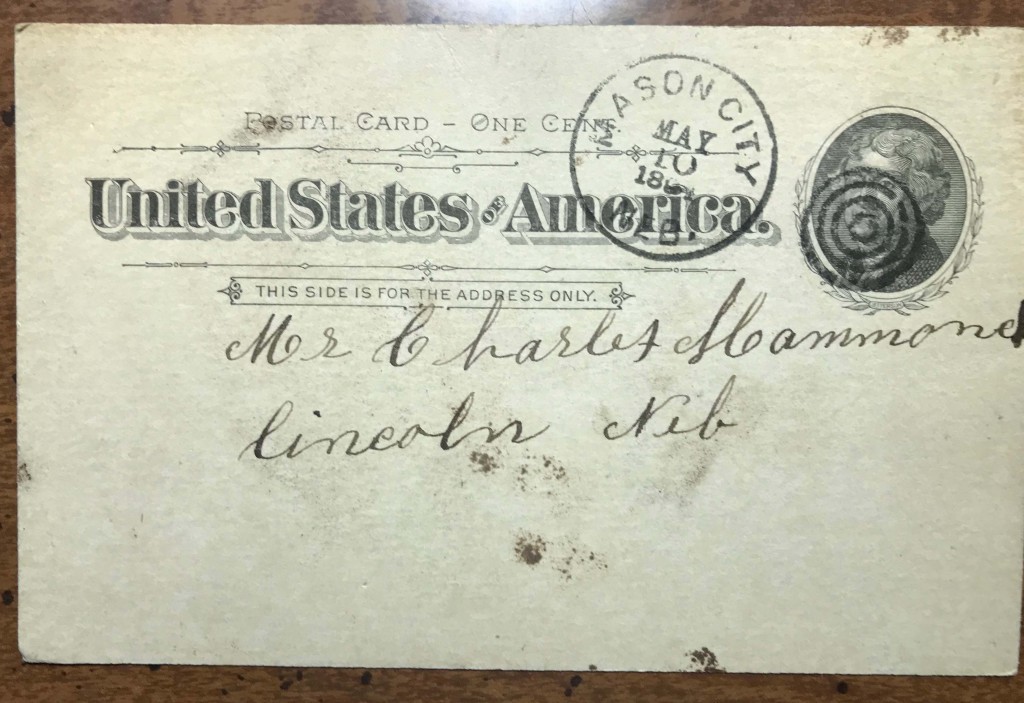 POSTAL CARD – ONE CENT.
United States OF America.
THIS SIDE IS FOR THE ADDRESS ONLY.
MASON CITY
MAY
10
NEB.
Mr Charles Hammond
Lincoln Neb